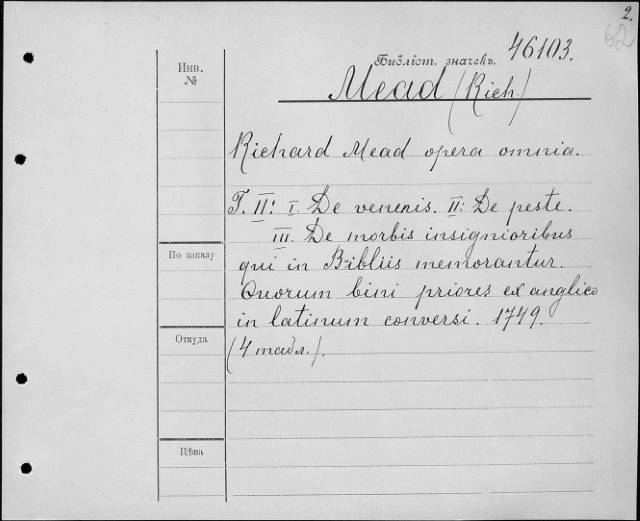 2.
62
Инв.
№
Библіот. значекъ. 46103.
Mead (Rich.)
Richard Mead opera omnia.
T. II: I. De venenis. II: De peste.
III. De morbis insignioribus
qui in Bibliis memorantur.
По заказу
Quorum bini priores ex anglico
in latinum conversi. 1749.
Откуда
(4 табл.).
Цѣна